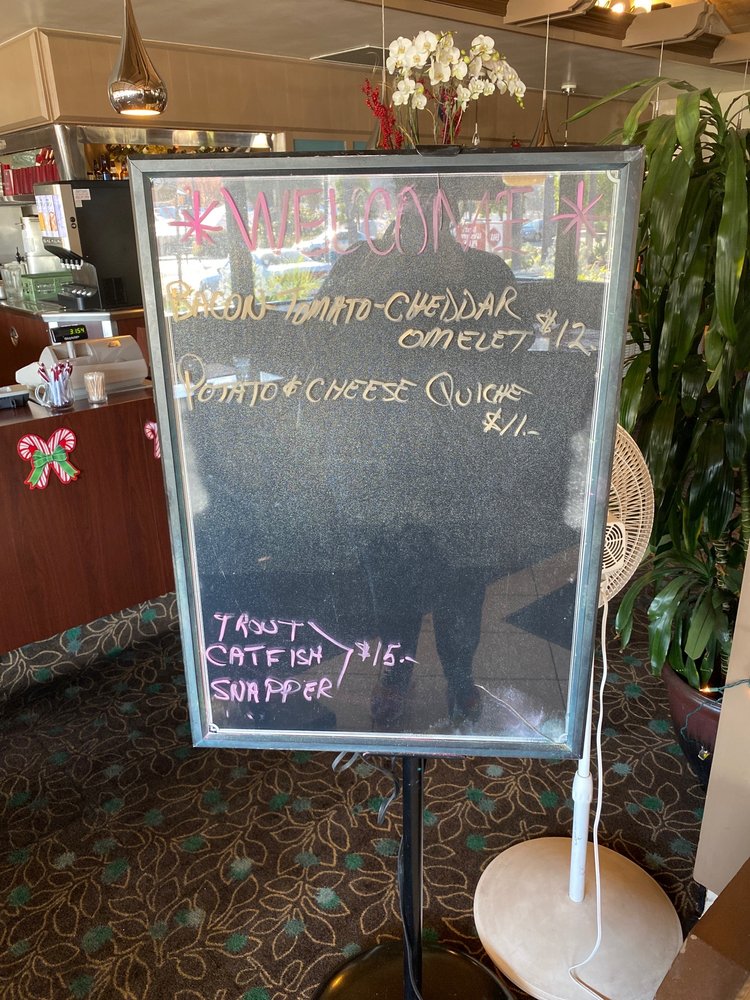 *WELCOME*
BACON TOMATO-CHEDDAR
OMELET $12.
POTATO & CHEESE QUICHE
$11.-
TROUT
CATFISH $15.-
SNAPPER